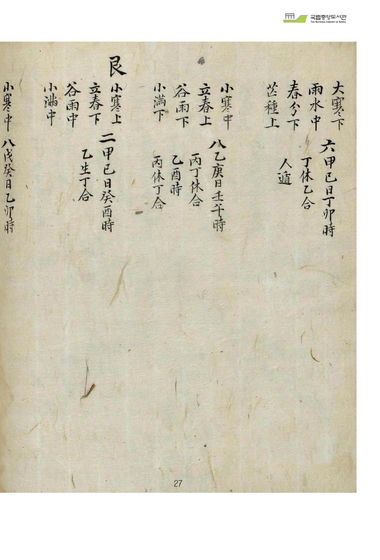 국립중앙도서관
大寒下
雨水中
春分下
芒種上
六甲己日丁卯時
丁休乙合
人遁
小寒中
立春上
谷雨下
小滿下
八乙庚日壬午時
丙丁休合
乙酉時
丙休丁合
艮
小寒上
立春下
谷雨中
小滿中
二甲己日癸酉時
乙生丁合
小寒中
八戊癸日乙卯時
27